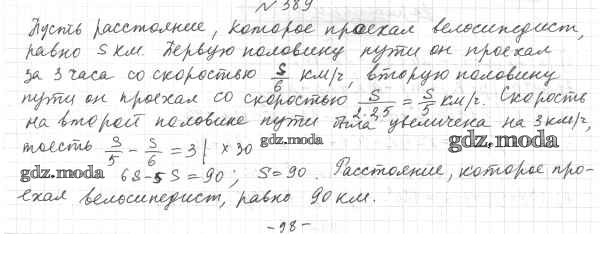 N 389
Пусть расстояние, которое проехал велосипедист,
равно S км. Первую половину пути он проехал
за 3 часа со скоростью S/6 км/ч, вторую половину
пути он проехал со скоростью S/(2·2,5) = S/5 км/ч. Скорость
на второй половине пути была увеличена на 3 км/ч,
gdz.moda
gdz.moda
тоесть S/5 - S/6 = 3 | × 30
gdz.moda
6S-5S=90; S=90. Расстояние, которое про-
ехал велосипедист, равно 90 км.
-98-